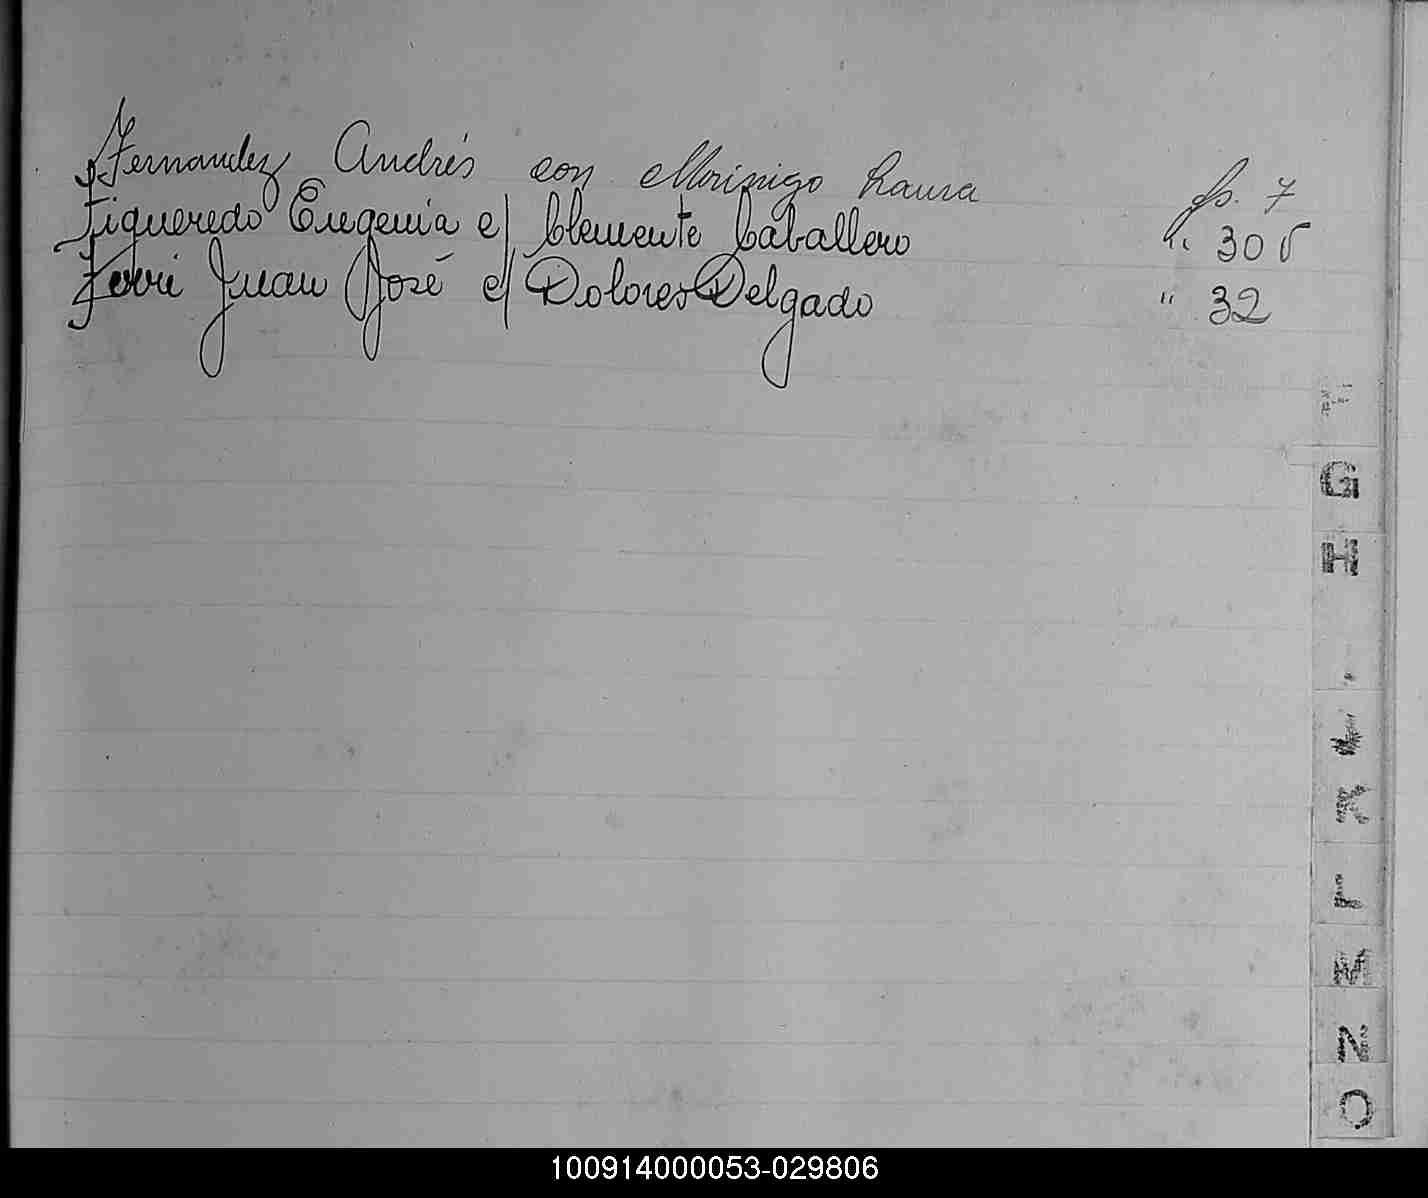 Fernandez Andrés con Morinigo Laura fs. 7
Figueredo Eugenia c/ Clemente Caballero " 30 v
Ferri Juan José c/ Dolores Delgado " 32
F
G
H
K
L
M
N
O
100914000053-029806